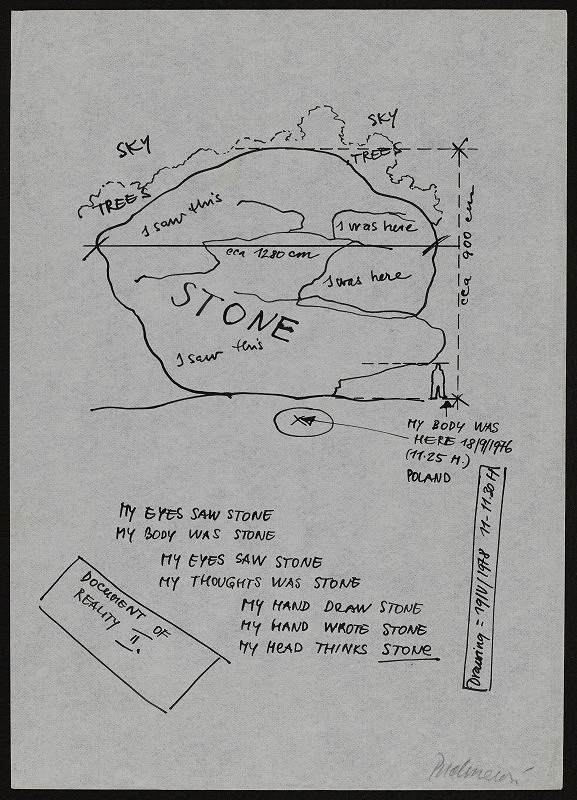 SKY
SKY
TREES
TREES
I saw this
I was here
cca 1280 cm
cca 900 cm
I was here
STONE
I saw this
MY BODY WAS
HERE 18/9/1976
(11.25 H.)
POLAND
MY EYES SAW STONE
MY BODY WAS STONE
MY EYES SAW STONE
MY THOUGHTS WAS STONE
MY HAND DRAW STONE
MY HAND WROTE STONE
MY HEAD THINKS STONE
DOCUMENT OF
REALITY II.
Drawing = 19/IV/1978 11-11.30 H